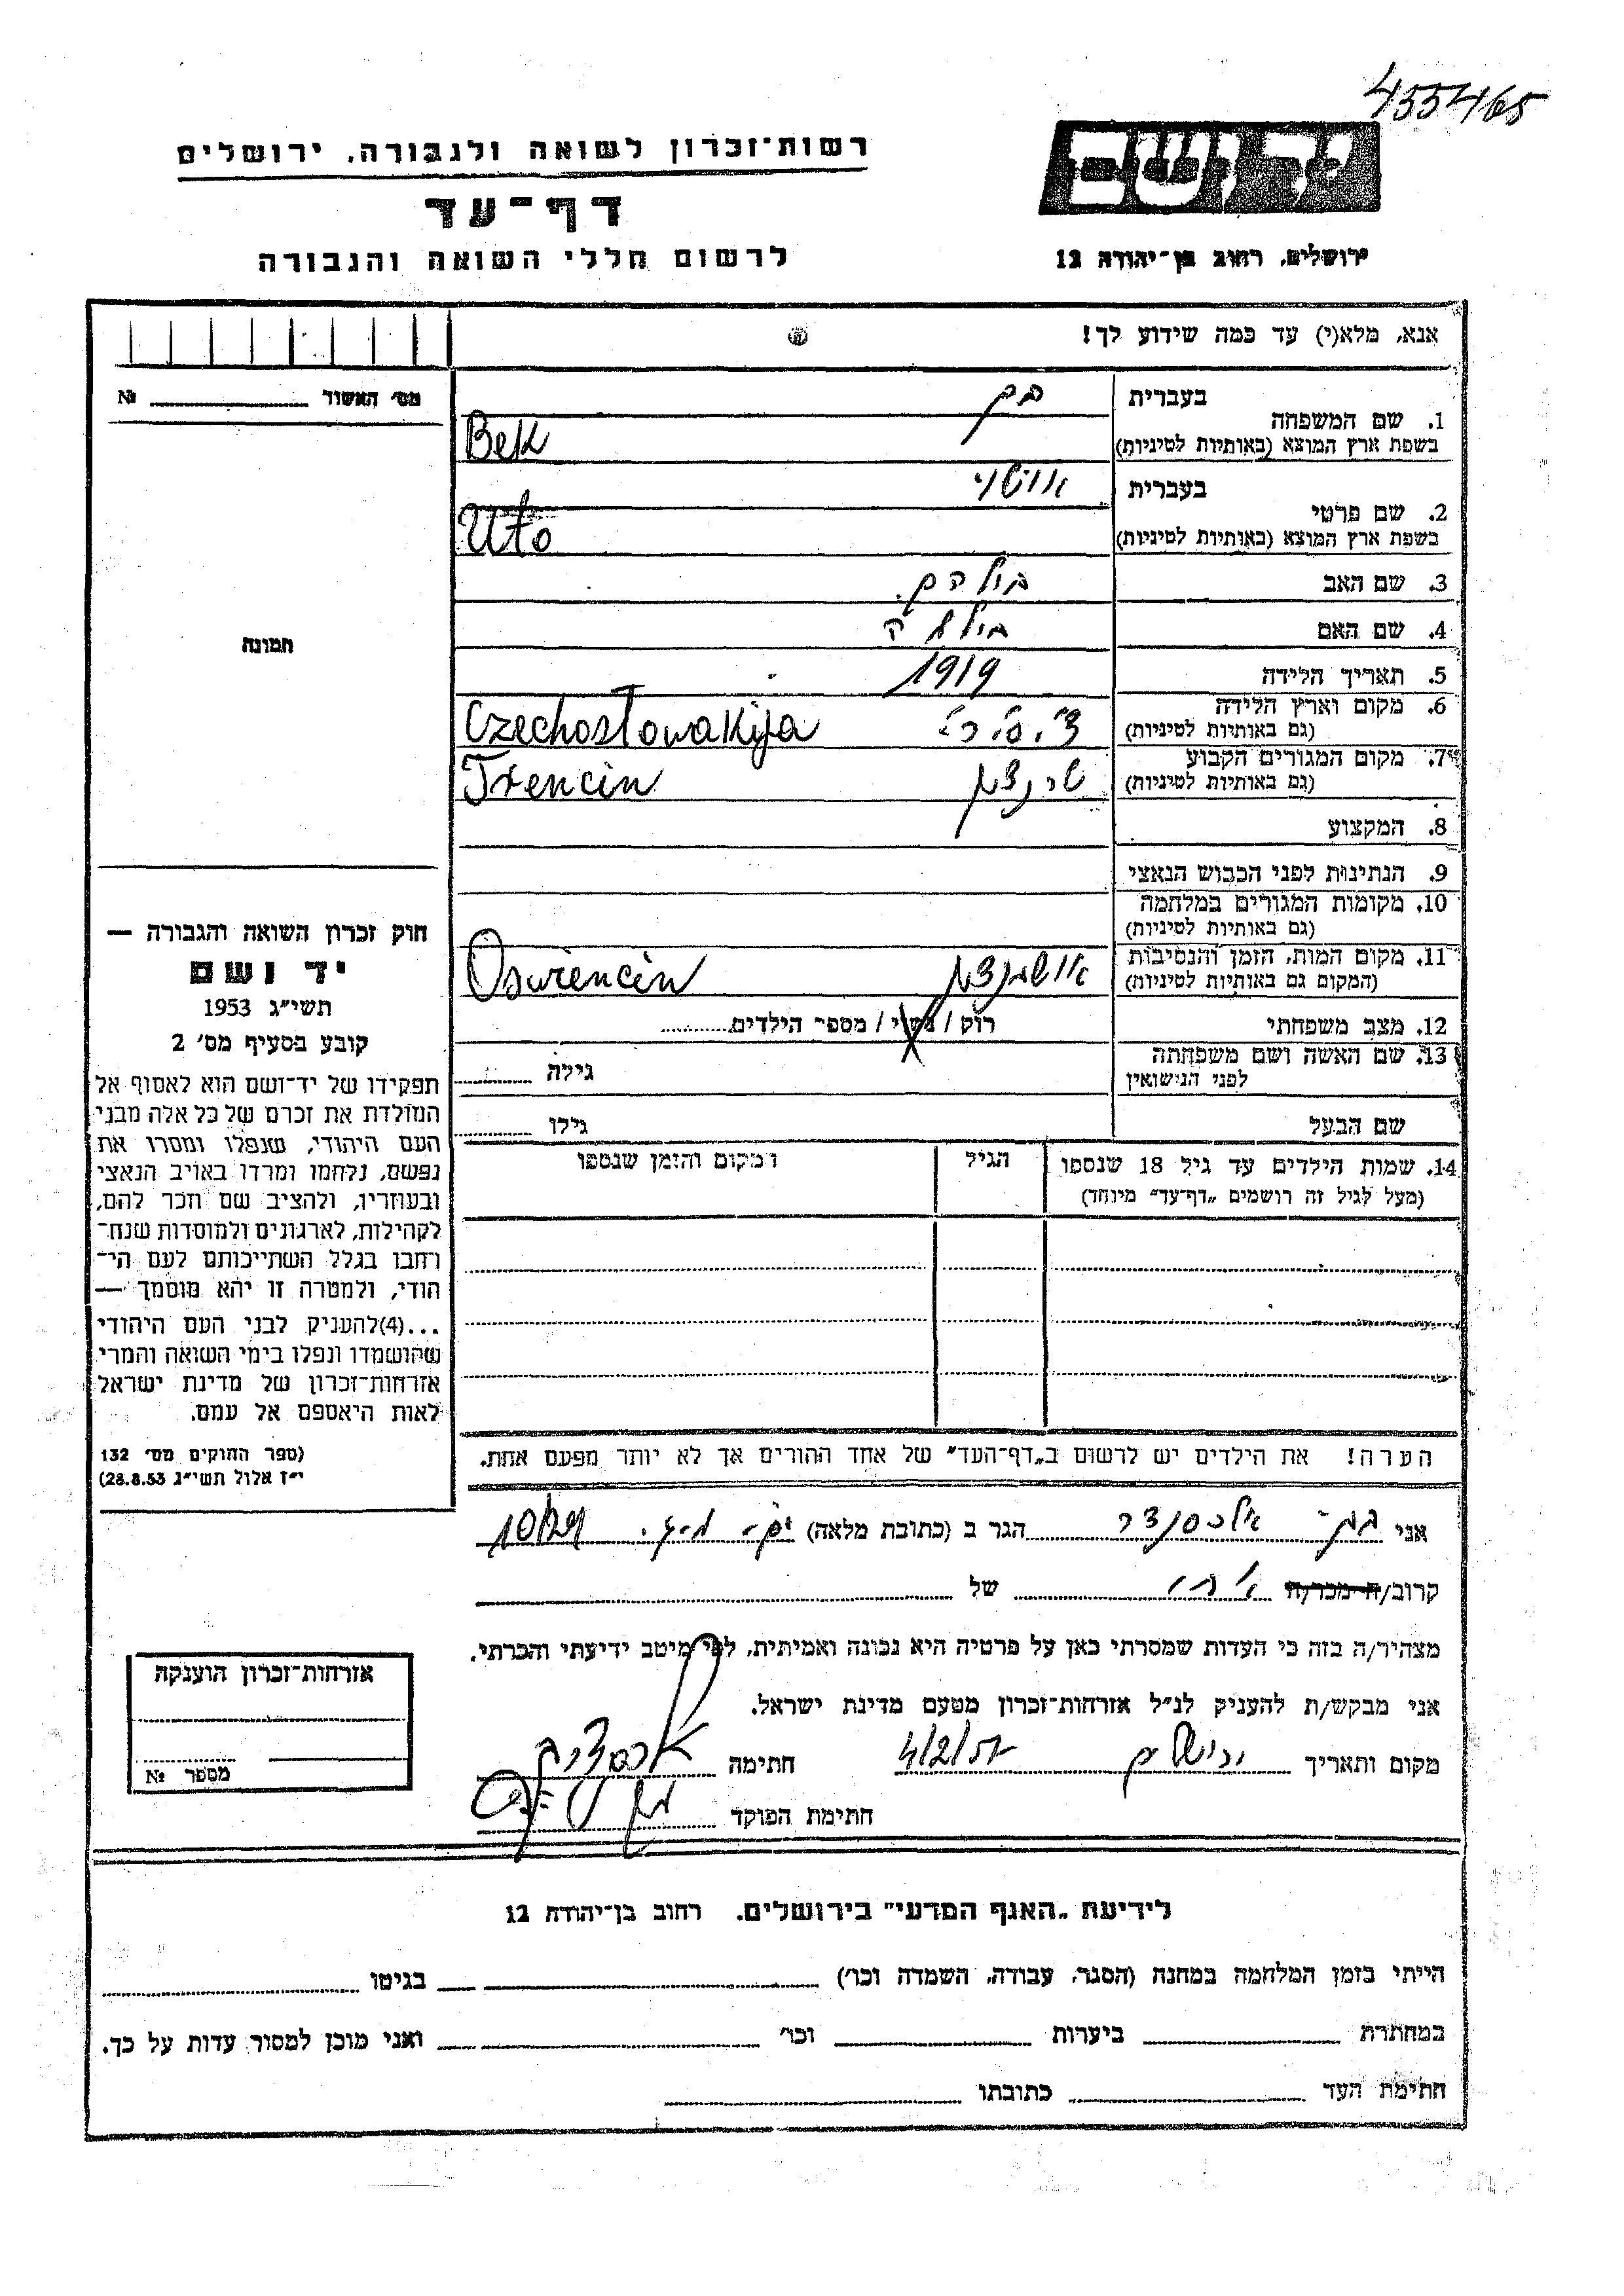 455465
יד ושם
רשות־זכרון לשואה ולגבורה, ירושלים
דף־עד
ירושלים, רחוב בן־יהודה 12
לרשום חללי השואה והגבורה
אנא, מלא(י) עד כמה שידוע לך!
מס׳ האשור №
1. שם המשפחה
בעברית בק
בשפת ארץ המוצא (באותיות לטיניות) Bek
2. שם פרטי
בעברית
בשפת ארץ המוצא (באותיות לטיניות) Uto
3. שם האב
4. שם האם
תמונה
5. תאריך הלידה 1919
6. מקום וארץ הלידה
(גם באותיות לטיניות) צ׳.ס.ר. Czechosłowakija
7. מקום המגורים הקבוע
(גם באותיות לטיניות) טרנצין Trencin
8. המקצוע
9. הנתינות לפני הכבוש הנאצי
10. מקומות המגורים במלחמה
(גם באותיות לטיניות)
11. מקום המות, הזמן והנסיבות
(המקום גם באותיות לטיניות) Oswiencin
12. מצב משפחתי רוק / נשוי / מספר הילדים
13. שם האשה ושם משפחתה
לפני הנישואין גילה
שם הבעל גילו
14. שמות הילדים עד גיל 18 שנספו
(מעל לגיל זה רושמים „דף־עד״ מיוחד)
הגיל
המקום והזמן שנספו
הערה! את הילדים יש לרשום ב„דף־העד״ של אחד ההורים אך לא יותר מפעם אחת.
חוק זכרון השואה והגבורה —
יד ושם
תשי״ג 1953
קובע בסעיף מס׳ 2
תפקידו של יד־ושם הוא לאסוף אל
המולדת את זכרם של כל אלה מבני
העם היהודי, שנפלו ומסרו את
נפשם, נלחמו ומרדו באויב הנאצי
ובעוזריו, ולהציב שם וזכר להם,
לקהילות, לארגונים ולמוסדות שנח־
רחבו בגלל השתייכותם לעם הי־
הודי, ולמטרה זו יהא מוסמך —
...(4)להעניק לבני העם היהודי
שהושמדו ונפלו בימי השואה והמרי
אזרחות־זכרון של מדינת ישראל
לאות היאספם אל עמם.
(ספר החוקים מס׳ 132
י״ז אלול תשי״ג 28.8.53)
אני בק אלכסנדר הגר ב (כתובת מלאה)
קרוב/ה מכר/ה של
מצהיר/ה בזה כי העדות שמסרתי כאן על פרטיה היא נכונה ואמיתית, לפי מיטב ידיעתי והכרתי.
אני מבקש/ת להעניק לנ״ל אזרחות־זכרון מטעם מדינת ישראל.
מקום ותאריך ירושלים חתימה
חתימת הפוקד
אזרחות־זכרון הוענקה
מספר №
לידיעת „האגף המדעי״ בירושלים, רחוב בן־יהודה 12
הייתי בזמן המלחמה במחנה (הסגר, עבודה, השמדה וכו׳) בגיטו
במחתרת ביערות וכו׳ ואני מוכן למסור עדות על כך.
חתימת העד כתובתו